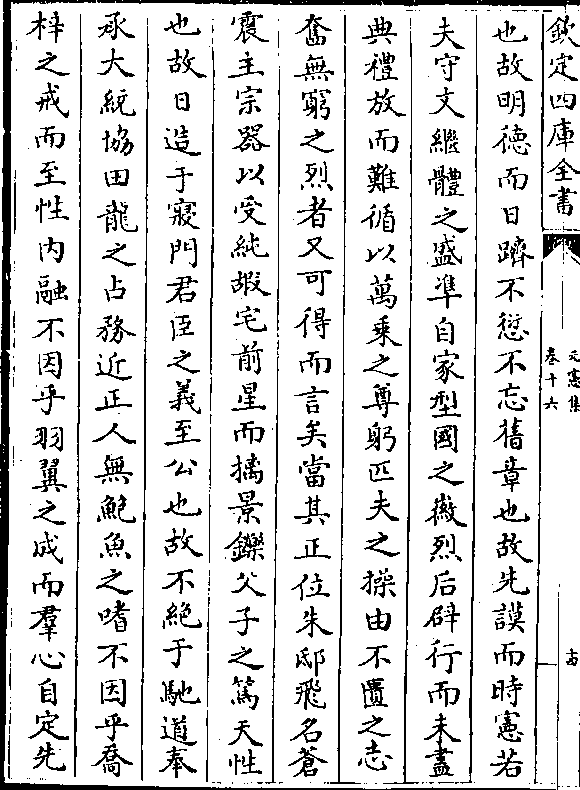 欽定四庫全書
元憲集
卷十六
十四
也故明德而日躋不愆不忘舊章也故先謨而時憲若
夫守文繼體之盛準自家型國之徽烈后辟行而未盡
典禮放而難循以萬乘之尊躬匹夫之操由不匱之志
奮無窮之烈者又可得而言矣當其正位朱邸飛名蒼
震主宗器以受純嘏宅前星而摛景鑠父子之篤天性
也故日造于寢門君臣之義至公也故不絕于馳道奉
承大統協田龍之占務近正人無鮑魚之嗜不因乎喬
梓之戒而至性内融不因乎羽翼之成而羣心自定先